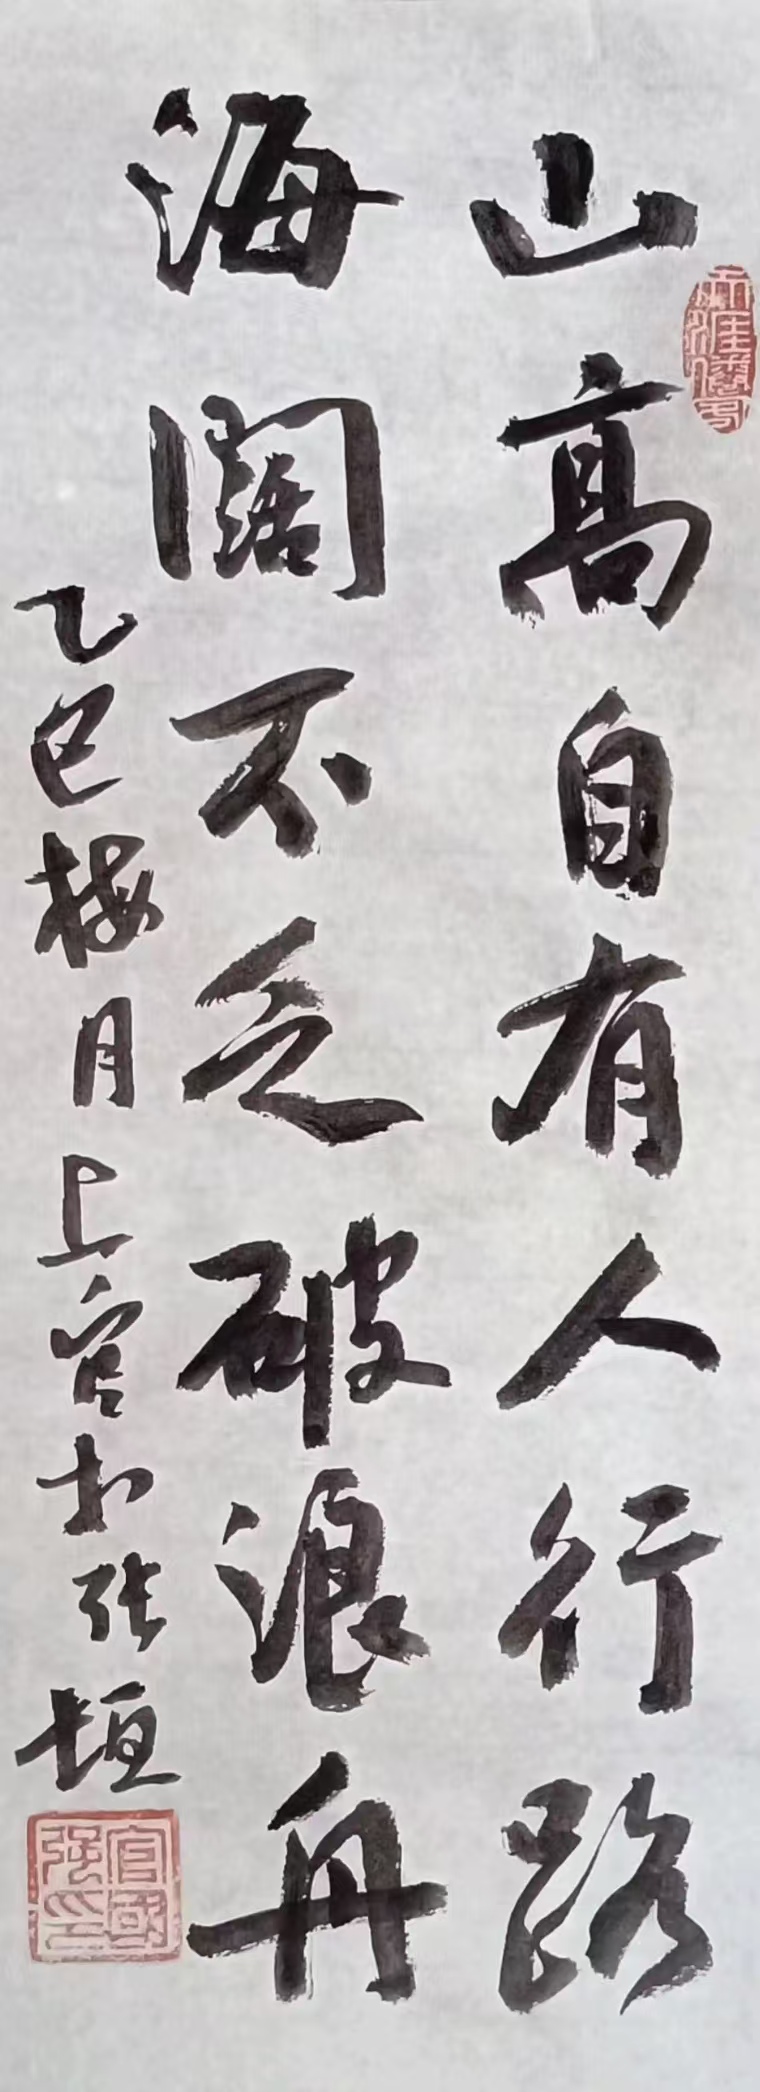 山高自有人行路
海阔不乏破浪舟
乙巳梅月上官书张垣
官國强印